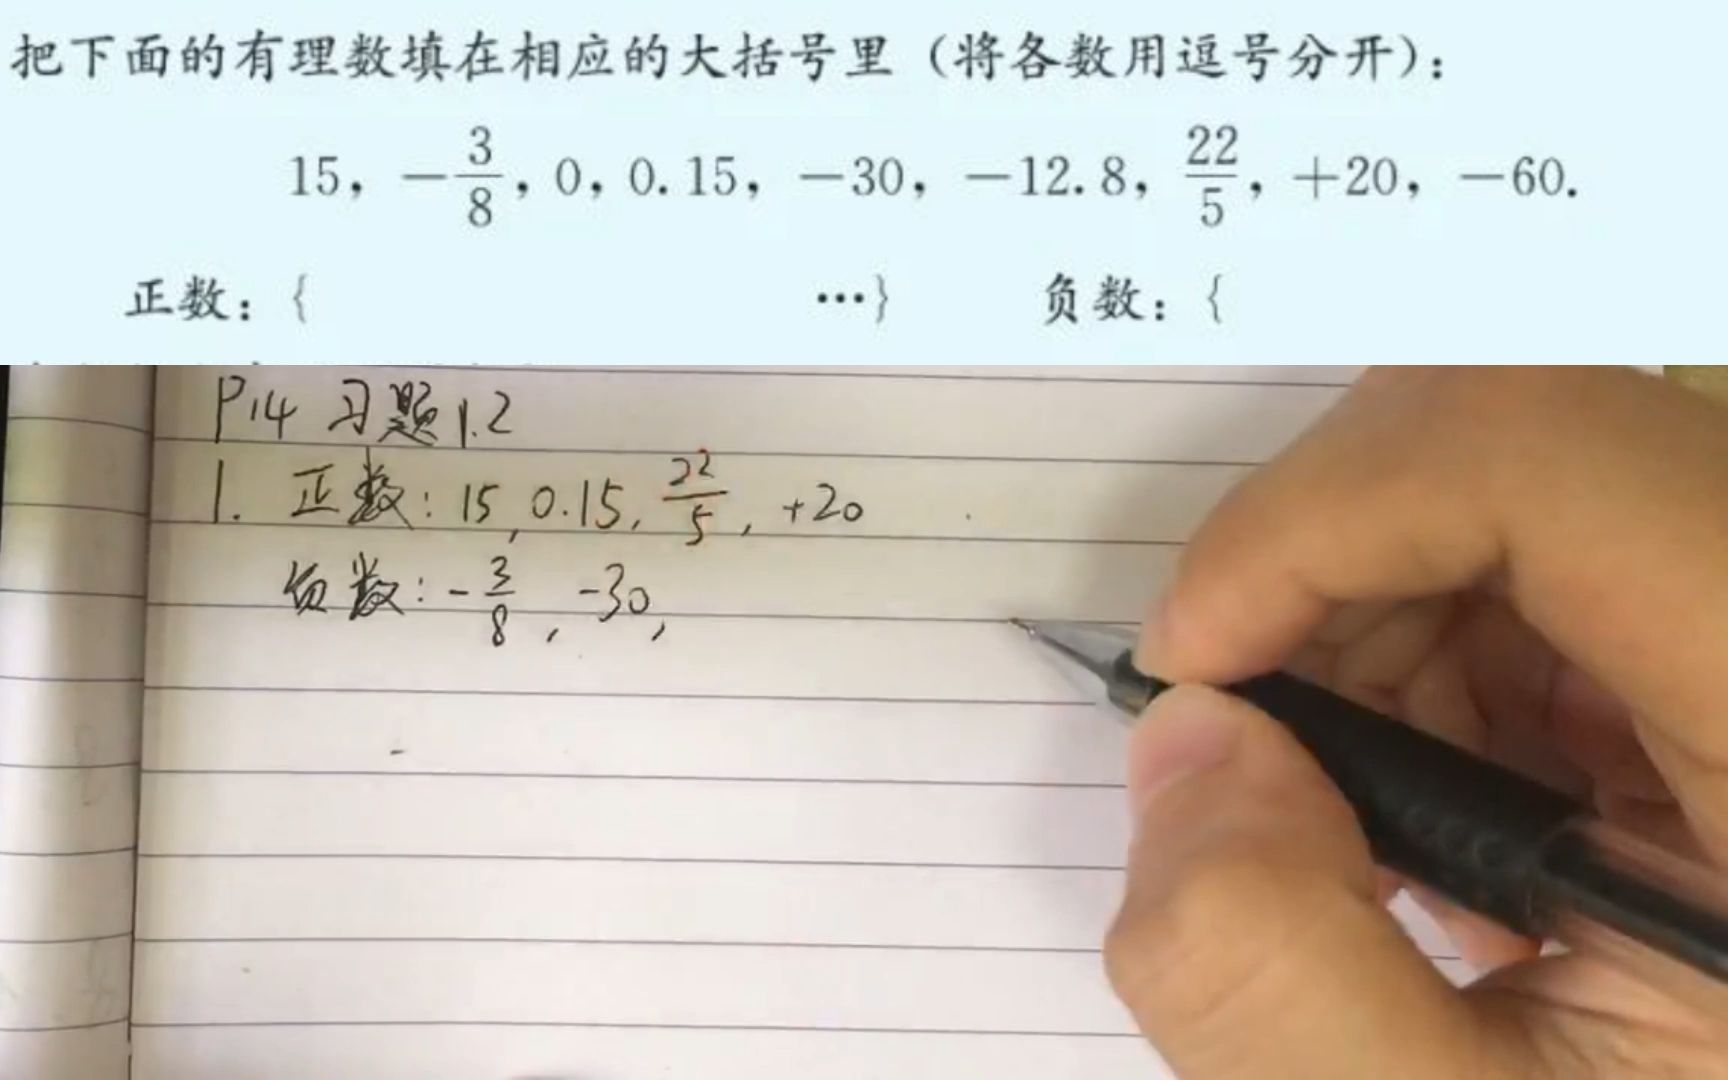 把下面的有理数填在相应的大括号里（将各数用逗号分开）：
15，-3/8，0，0.15，-30，-12.8，22/5，+20，-60.
正数：{ …} 负数：{
P14 习题1.2
1. 正数：15, 0.15, 22/5, +20
负数：-3/8, -30,